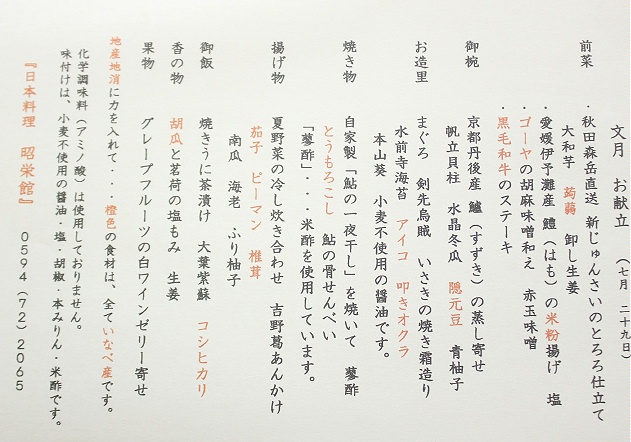 文月　お献立　（七月　二十九日）
前菜　・秋田森岳直送　新じゅんさいのとろろ仕立て
大和芋　蒟蒻　卸し生姜
・愛媛伊予灘産　鱧（はも）の米粉揚げ　塩
・ゴーヤの胡麻味噌和え　赤玉味噌
・黒毛和牛のステーキ
御椀　京都丹後産　鱸（すずき）の蒸し寄せ
帆立貝柱　水晶冬瓜　隠元豆　青柚子
お造里　まぐろ　剣先烏賊　いさきの焼き霜造り
水前寺海苔　アイコ　叩きオクラ
本山葵　小麦不使用の醤油です。
焼き物　自家製「鮎の一夜干し」を焼いて　蓼酢
とうもろこし　鮎の骨せんべい
「蓼酢」・・米酢を使用しています。
揚げ物　夏野菜の冷し炊き合わせ　吉野葛あんかけ
茄子　ピーマン　椎茸
南瓜　海老　ふり柚子
御飯　焼きうに茶漬け　大葉紫蘇　コシヒカリ
香の物　胡瓜と茗荷の塩もみ　生姜
果物　グレープフルーツの白ワインゼリー寄せ
地産地消に力を入れて・・・橙色の食材は、全ていなべ産です。
化学調味料（アミノ酸）は使用しておりません。
味付けは、小麦不使用の醤油・塩・胡椒・本みりん・米酢です。
『日本料理　昭栄館』　0594(72)2065